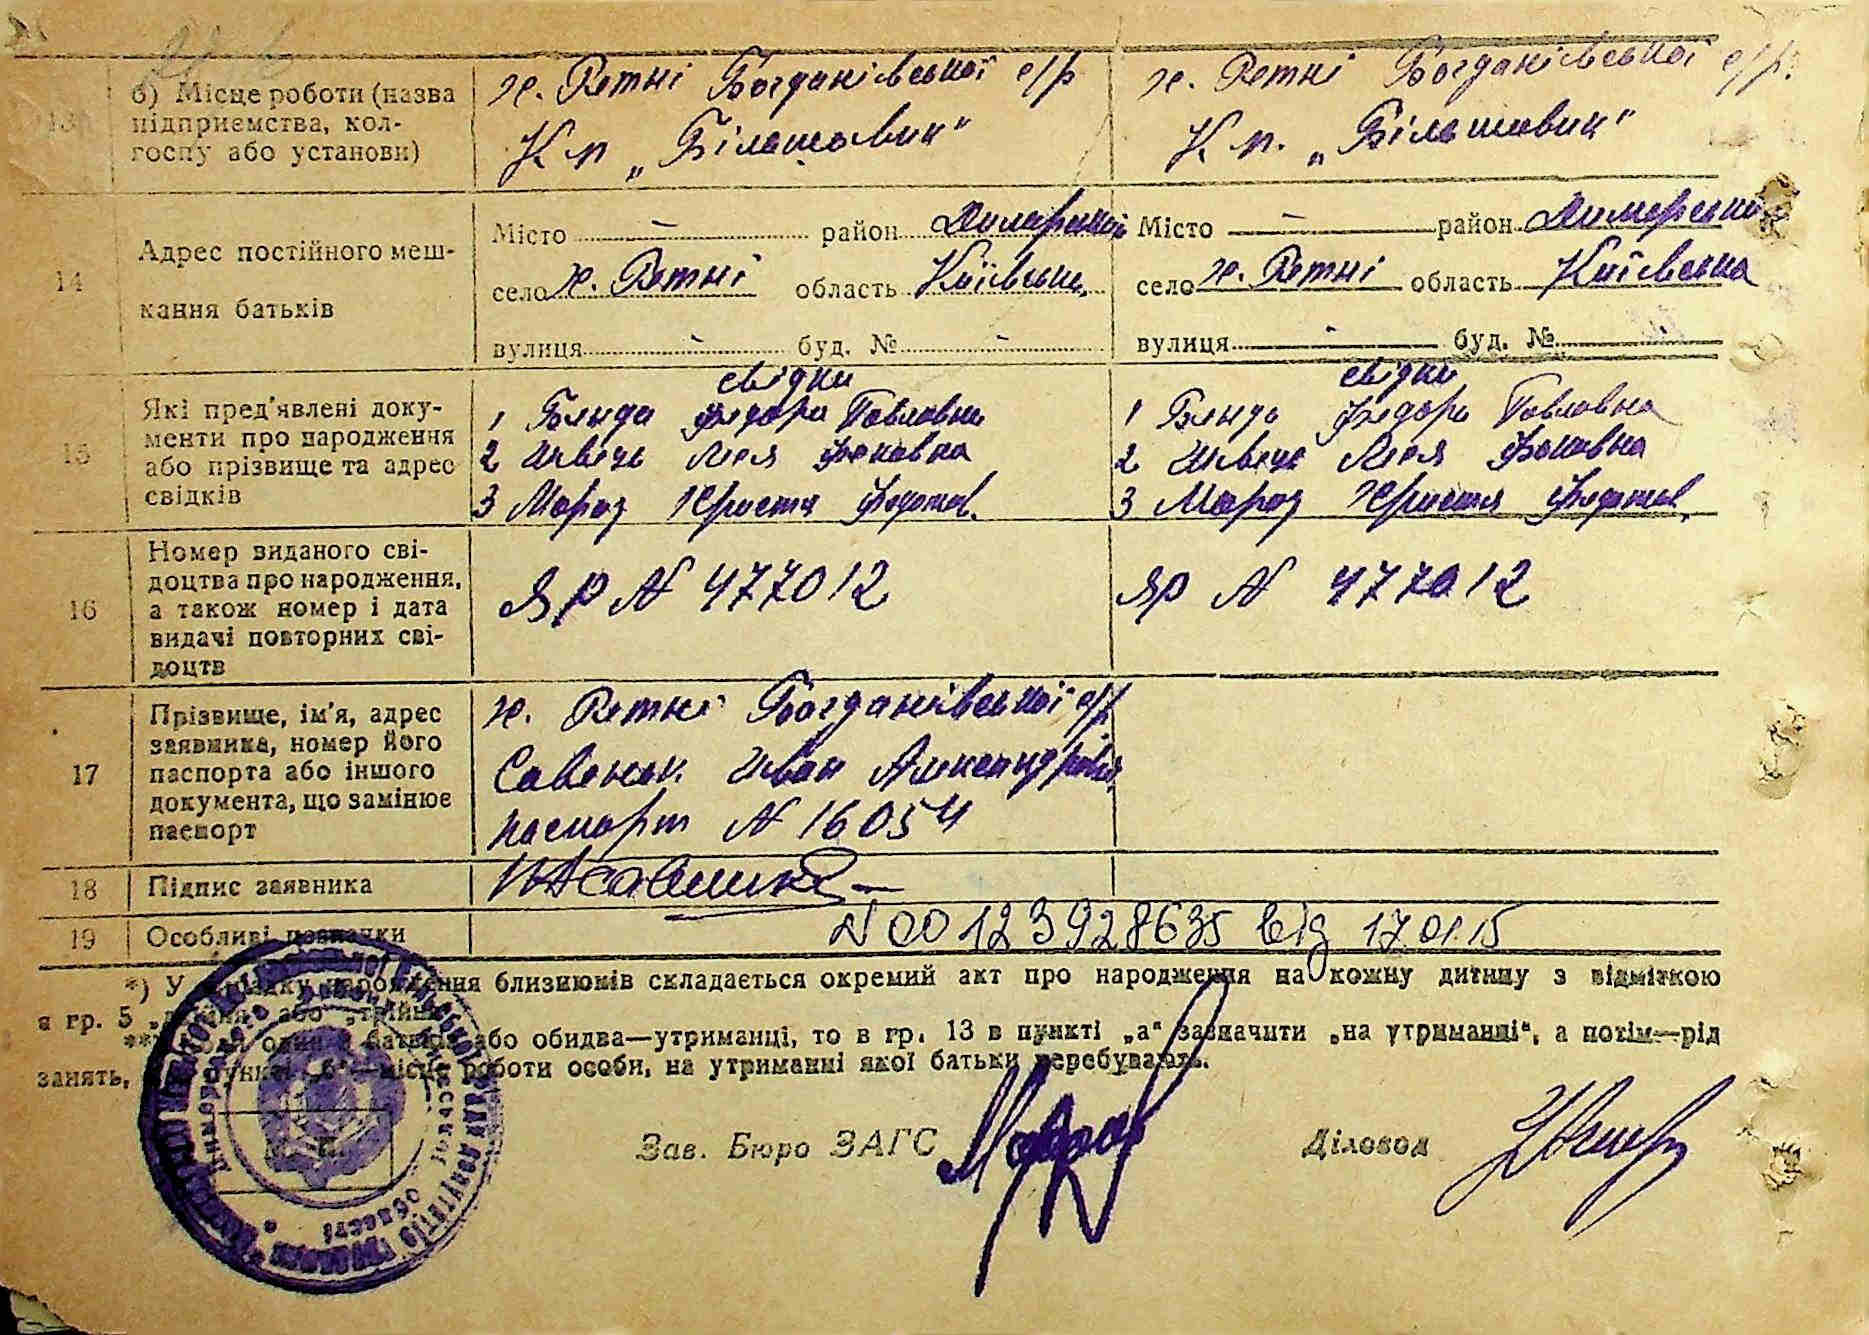 13
б) Місце роботи (назва
підприємства, кол-
госпу або установи)
х. Ретні Богданівської с/р
К. п „Більшовик“
х. Ретні Богданівської с/р.
К. п. „Більшовик“
14
Адрес постійного меш-
кання батьків
Місто — район Димерський
село х. Ретні область Київська
вулиця - буд. № -
Місто — район Димерський
село х. Ретні область Київська
вулиця - буд. № -
15
Які пред'явлені доку-
менти про народження
або прізвище та адрес
свідків
свідки
1 Бянда Федора Павловна
2 Швець Леся Фоковна
3 Мороз Христя Федотов.
свідки
1 Бянда Федора Павловна
2 Швець Леся Фоковна
3 Мороз Христя Федотов.
16
Номер виданого сві-
доцтва про народження,
а також номер і дата
видачі повторних сві-
доцтв
ЯР N 477012
ЯР N 477012
17
Прізвище, ім'я, адрес
заявника, номер його
паспорта або іншого
документа, що замінює
паспорт
х. Ретні Богданівської с/р
Савенок Иван Александрович
паспорт N 16054
18
Підпис заявника
19
Особливі позначки
N 00123928635 від 17.01.15
*) У випадку народження близнюків складається окремий акт про народження на кожну дитину з відміткою
в гр. 5 „двійня“ або „трійня“.
**) Коли один з батьків або обидва—утриманці, то в гр. 13 в пункті „а“ зазначити „на утриманні“, а потім—рід
занять, в пункті „б“—місце роботи особи, на утриманні якої батьки перебувають.
Зав. Бюро ЗАГС
Діловод
М. П.